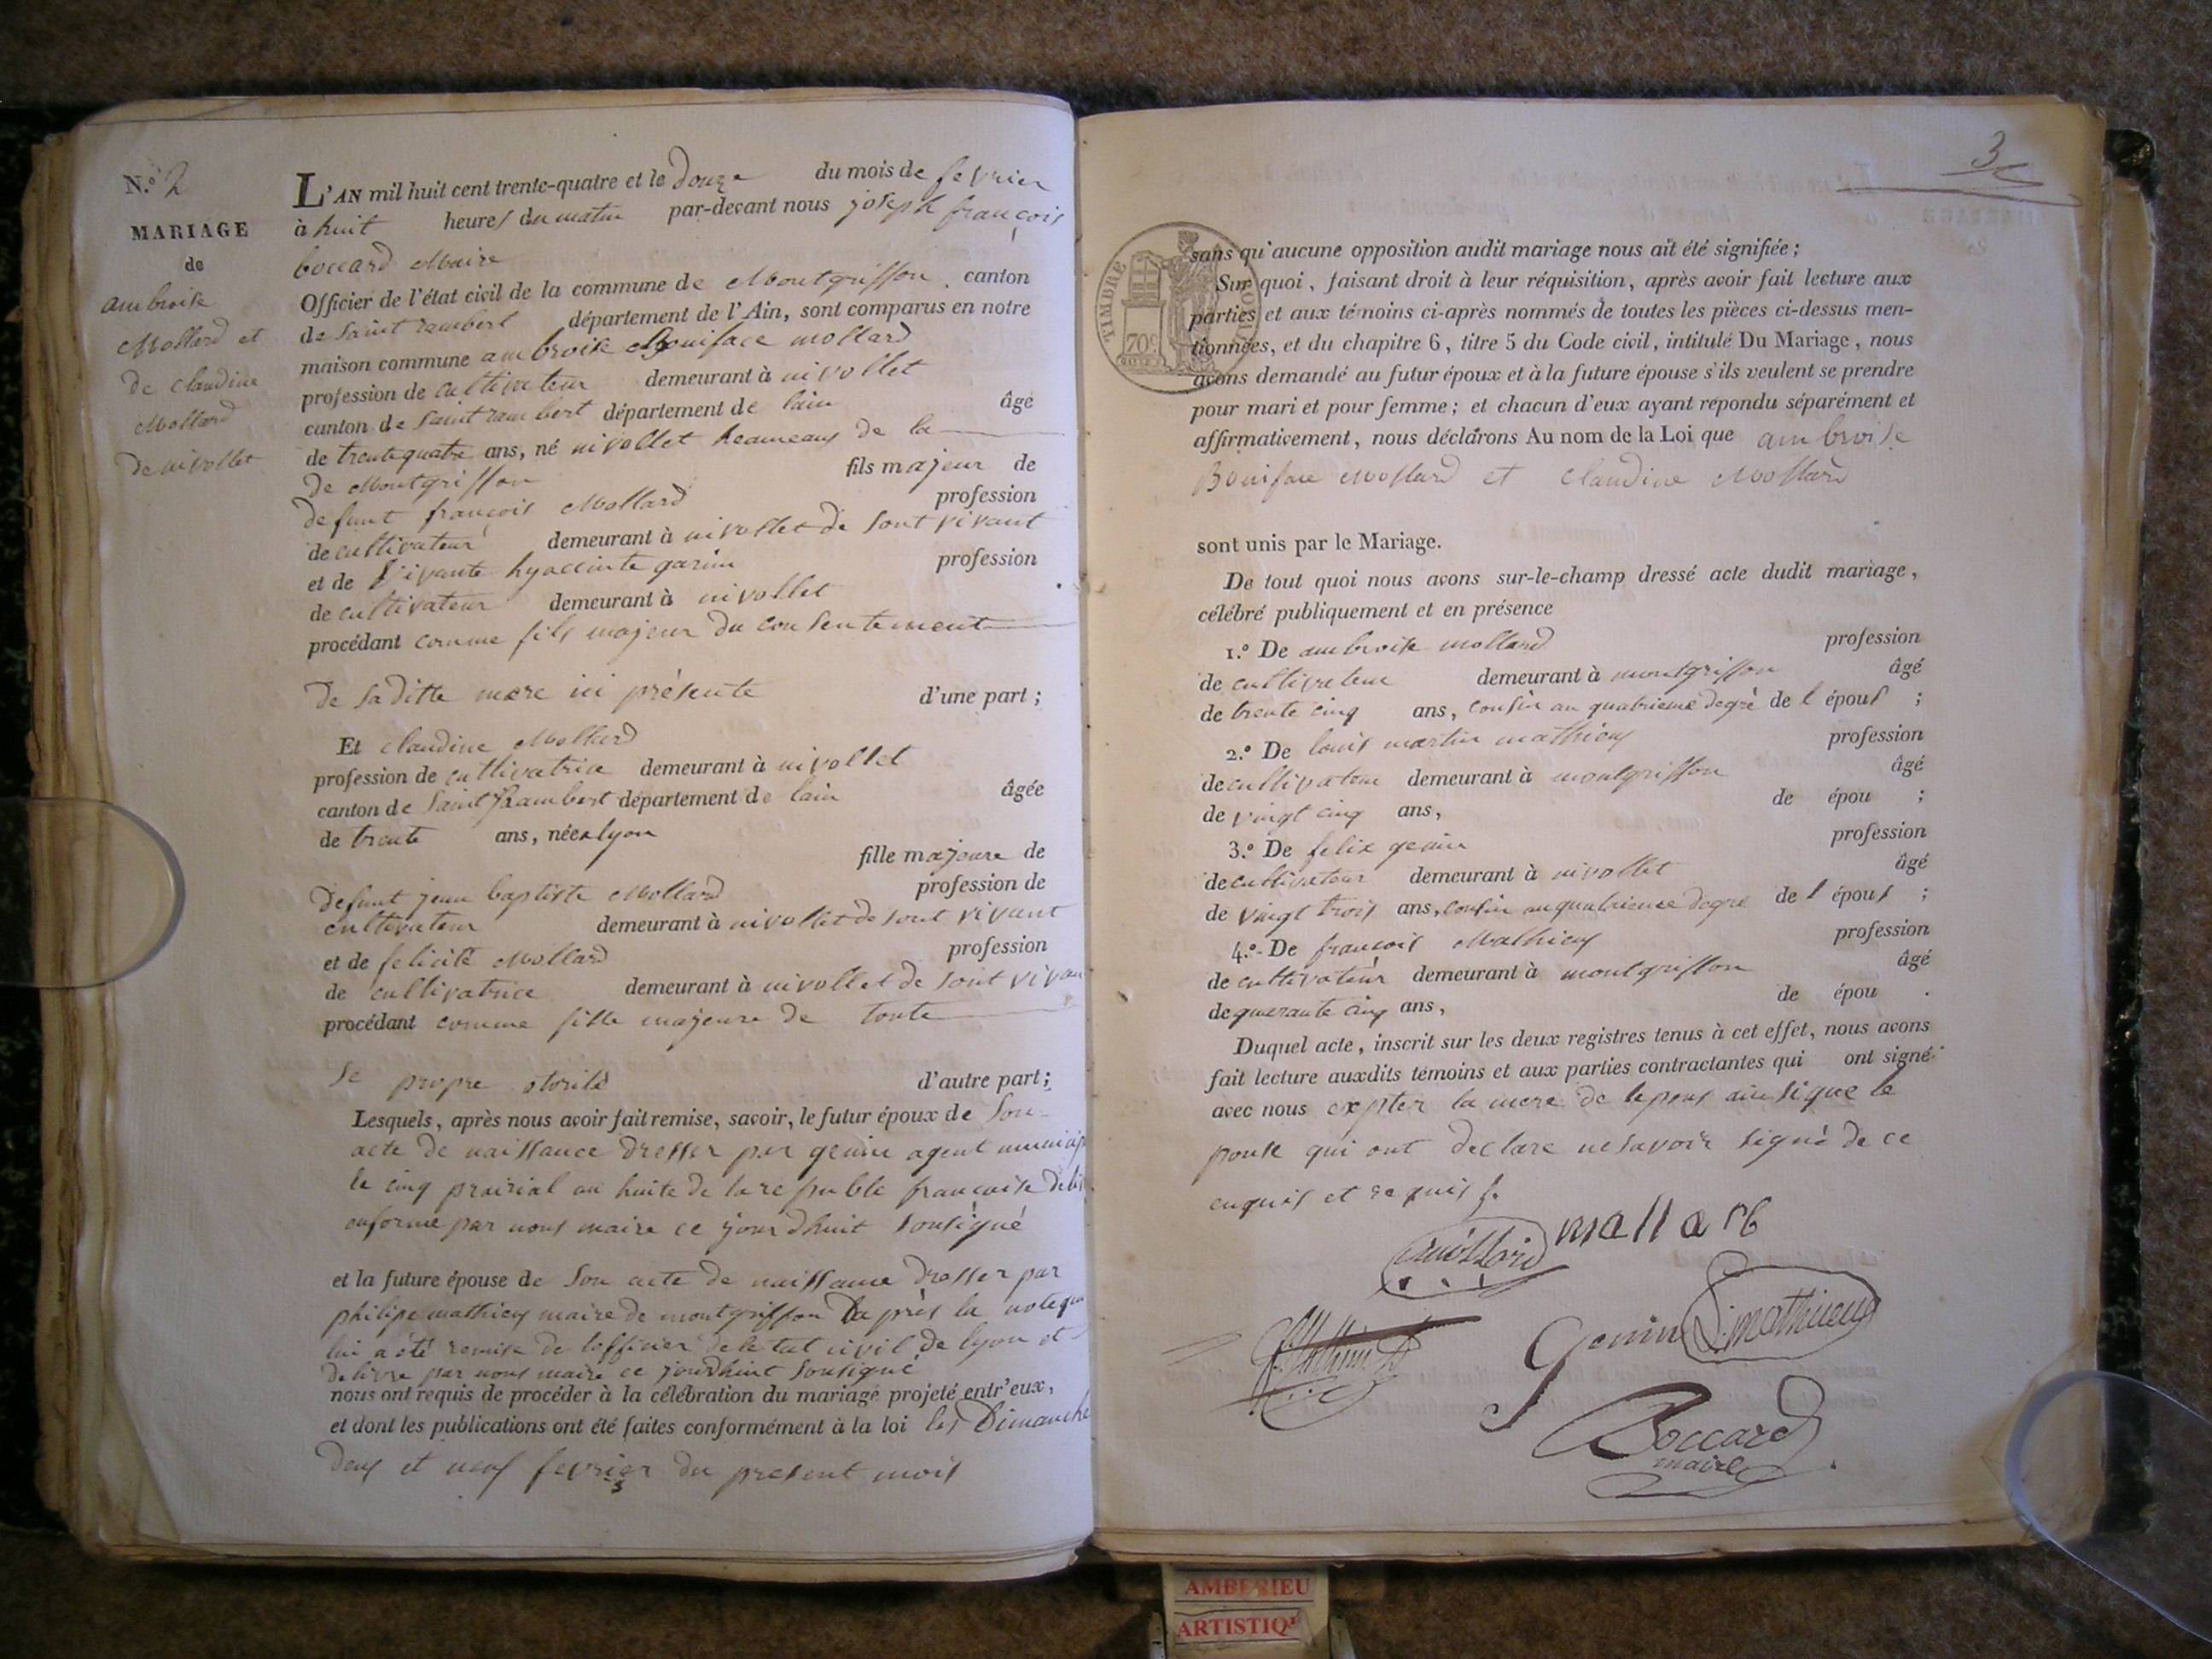 N.º 2
MARIAGE
de
ambroise
Mollard et
de claudine
Mollard
de nivollet
L'AN mil huit cent trente-quatre et le douze du mois de fevrier
à huit heures du matin par-devant nous joseph françois
boccard Maire
Officier de l'état civil de la commune de Montgriffon, canton
de Saint rambert département de l'Ain, sont comparus en notre
maison commune ambroise Boniface mollard
profession de cultivateur demeurant à nivollet
canton de Saint rambert département de lain âgé
de trente quatre ans, né nivollet heameaux de la
de Montgriffon fils majeur de
defunt françois Mollard profession
de cultivateur demeurant à nivollet de sont vivant
et de vivante hyaccinte garin profession
de cultivateur demeurant à nivollet
procédant comme fils majeur du consentement
de sa ditte mere ici présente d'une part ;
Et claudine Mollard
profession de cultivatrice demeurant à nivollet
canton de Saint Rambert département de lain âgée
de trente ans, née a lyon
fille majeure de
defunt jean baptiste Mollard profession de
cultivateur demeurant à nivollet de sont vivant
et de felicité Mollard profession
de cultivatrice demeurant à nivollet de sont vivan
procédant comme fille majeure de toute
se propre otorité d'autre part ;
Lesquels, après nous avoir fait remise, savoir, le futur époux de son
acte de naissance dresser par genin agent
le cinq prairial an huite de la republe francaise
conforme par nous maire ce jourdhuit sousigné
et la future épouse de son acte de naissance dresser par
philipe mathieux maire de montgriffon da près la note
lui a été remise de lofficier de letat civil de lyon et
delivre par nous maire ce jourdhuit sousigné
nous ont requis de procéder à la célébration du mariage projeté entr'eux,
et dont les publications ont été faites conformément à la loi les Dimanche
deux et neuf fevrier du present mois
3
TIMBRE ROYAL
70c
sans qu'aucune opposition audit mariage nous ait été signifiée ;
Sur quoi, faisant droit à leur réquisition, après avoir fait lecture aux
parties et aux témoins ci-après nommés de toutes les pièces ci-dessus men-
tionnées, et du chapitre 6, titre 5 du Code civil, intitulé Du Mariage, nous
avons demandé au futur époux et à la future épouse s'ils veulent se prendre
pour mari et pour femme ; et chacun d'eux ayant répondu séparément et
affirmativement, nous déclarons Au nom de la Loi que ambroise
Boniface Mollard et claudine Mollard
sont unis par le Mariage.
De tout quoi nous avons sur-le-champ dressé acte dudit mariage,
célébré publiquement et en présence
1.º De ambroise mollard profession
de cultivateur demeurant à montgriffon âgé
de trente cinq ans, cousin au quatrieme degrè de l épous ;
2.º De louis martin mathieux profession
de cultivateur demeurant à montgriffon âgé
de vingt cinq ans, de épou ;
3.º De felix genin profession
de cultivateur demeurant à nivollet âgé
de vingt trois ans, cousin au quatrieme degre de l épous ;
4.º De françois Mathieux profession
de cultivateur demeurant à montgriffon âgé
de quarante cinq ans, de épou .
Duquel acte, inscrit sur les deux registres tenus à cet effet, nous avons
fait lecture auxdits témoins et aux parties contractantes qui ont signé
avec nous expter la mere de lepous ainsi que le
pouse qui ont declare ne savoir signé de ce
enquis et requis
Mollard mallard
Genin L. mathieux
Boccard
maire
AMBERIEU
ARTISTIQ